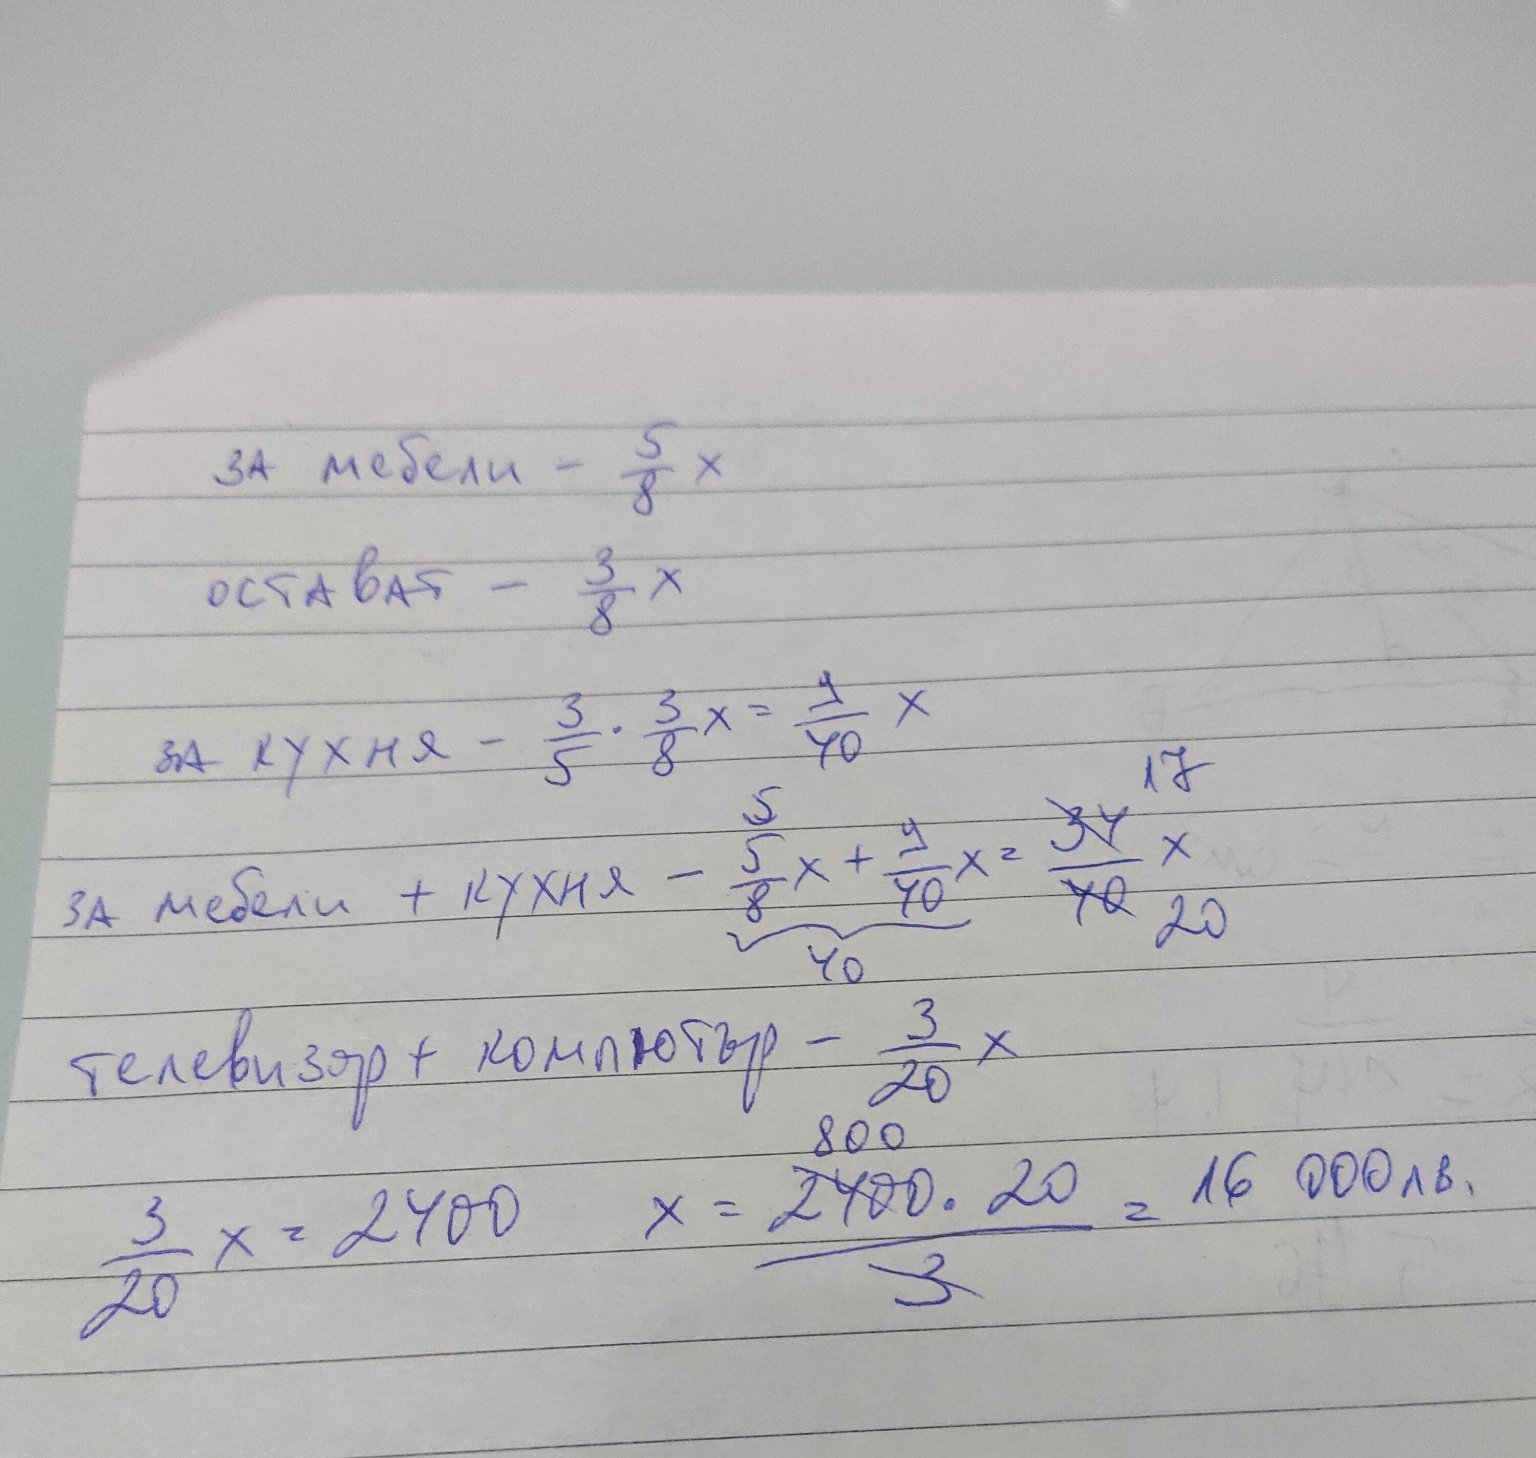 за мебели - 5/8 x
остават - 3/8 x
за кухня - 3/5 · 3/8 x = 9/40 x
17
5
за мебели + кухня - 5/8 x + 9/40 x = 34/40 x
20
40
телевизор + компютър - 3/20 x
800
3/20 x = 2400 x = 2400 · 20 / 3 = 16 000 лв.